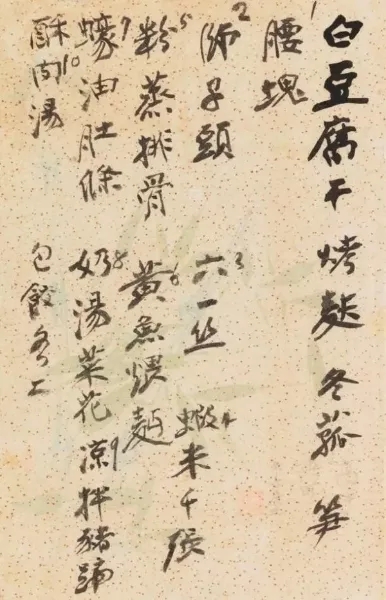 白豆腐干 烤麩 冬菰 笋
腰塊1
師子頭2 六一丝3 蝦米千張4
粉蒸排骨5 黃魚煨麵6
蠔油肚條7 奶湯菜花8 涼拌豬蹄9
酥肉湯10 包餃